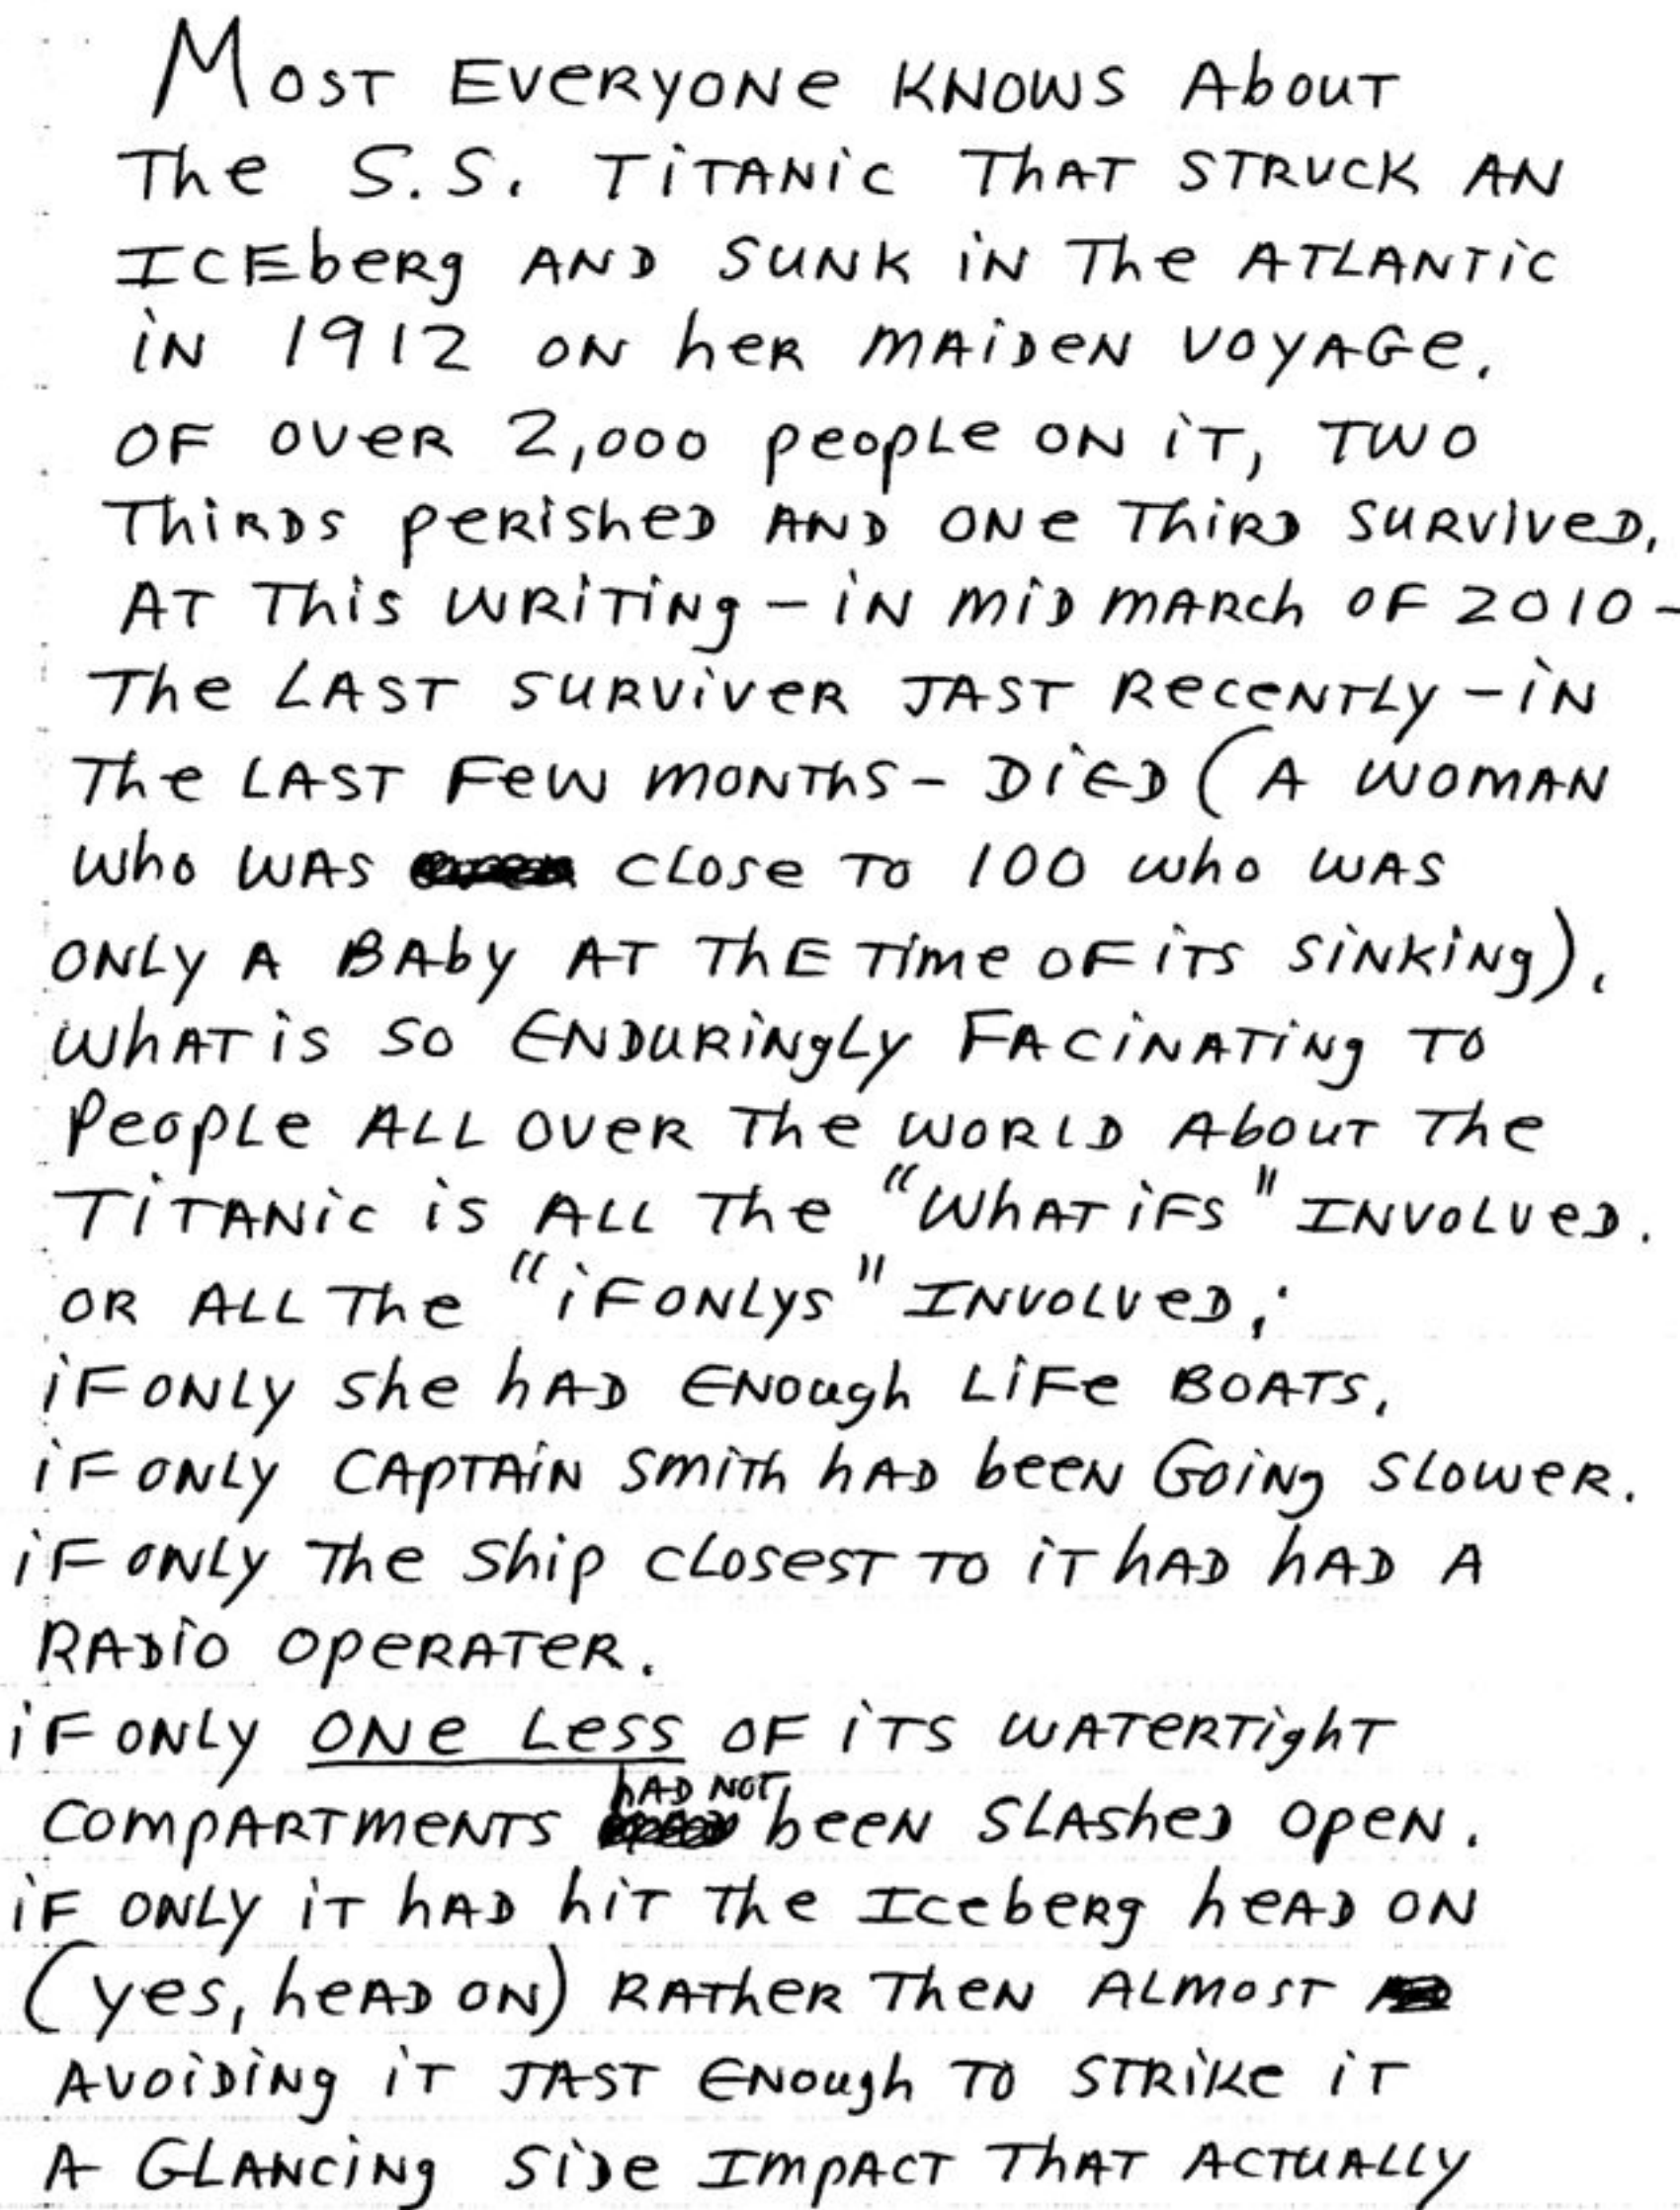 Most Everyone knows About
The S.S. Titanic That struck an
Iceberg and sunk in The Atlantic
in 1912 on her maiden voyage.
Of over 2,000 people on it, two
Thirds perished and one Third survived.
At This writing – in mid march of 2010 –
The Last surviver jast recently – in
The Last few months – died (a woman
who was close to 100 who was
only a Baby at the time of its sinking).
What is so enduringly facinating to
People all over The world about The
Titanic is all The "what ifs" involved.
or all The "if onlys" involved;
if only she had enough Life Boats.
if only Captain Smith had been Going slower.
if only The ship closest to it had had a
Radio operater.
if only one less of its watertight
compartments had not been slashed open.
if only it had hit The Iceberg head on
(yes, head on) Rather Then almost
avoiding it jast enough to strike it
a Glancing side impact That actually